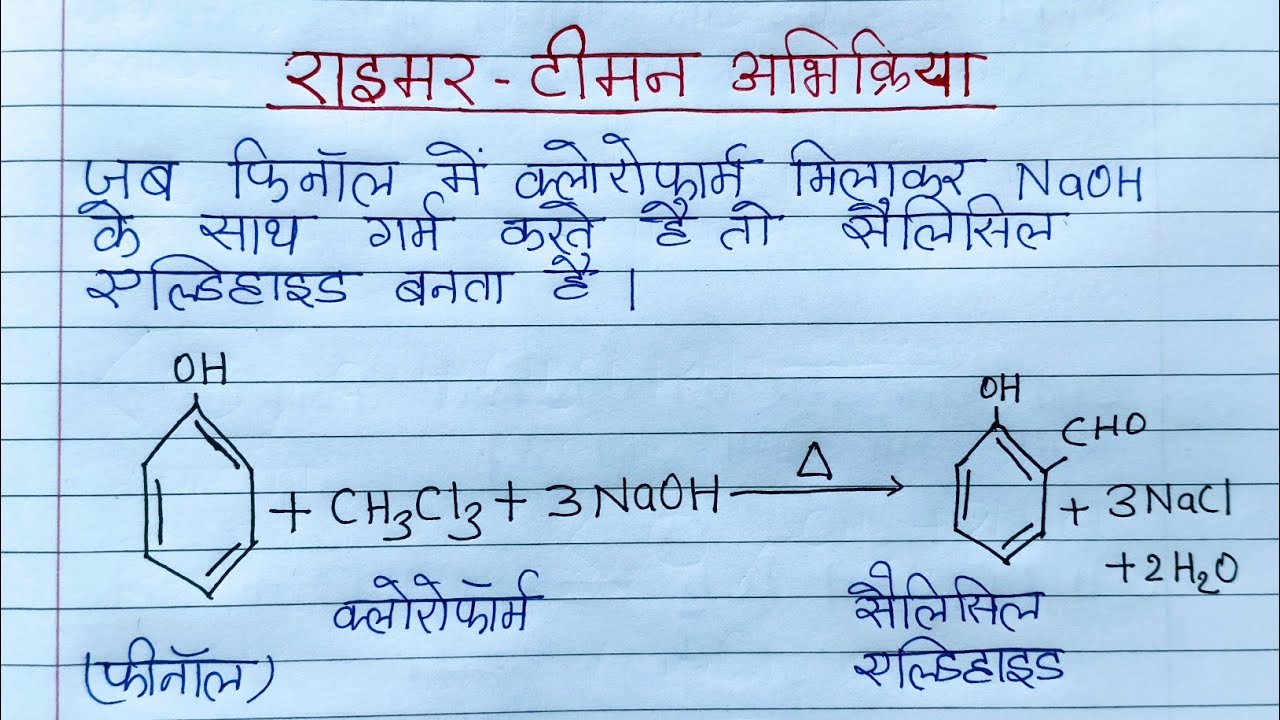 राइमर - टीमन अभिक्रिया
जब फिनॉल में क्लोरोफार्म मिलाकर NaOH
के साथ गर्म करते है तो सैलिसिल
एल्डिहाइड बनता है।
OH
OH
CHO
+ CH₃Cl₃ + 3NaOH ⟶ Δ + 3NaCl
+ 2H₂O
क्लोरोफॉर्म सैलिसिल
(फीनॉल) एल्डिहाइड